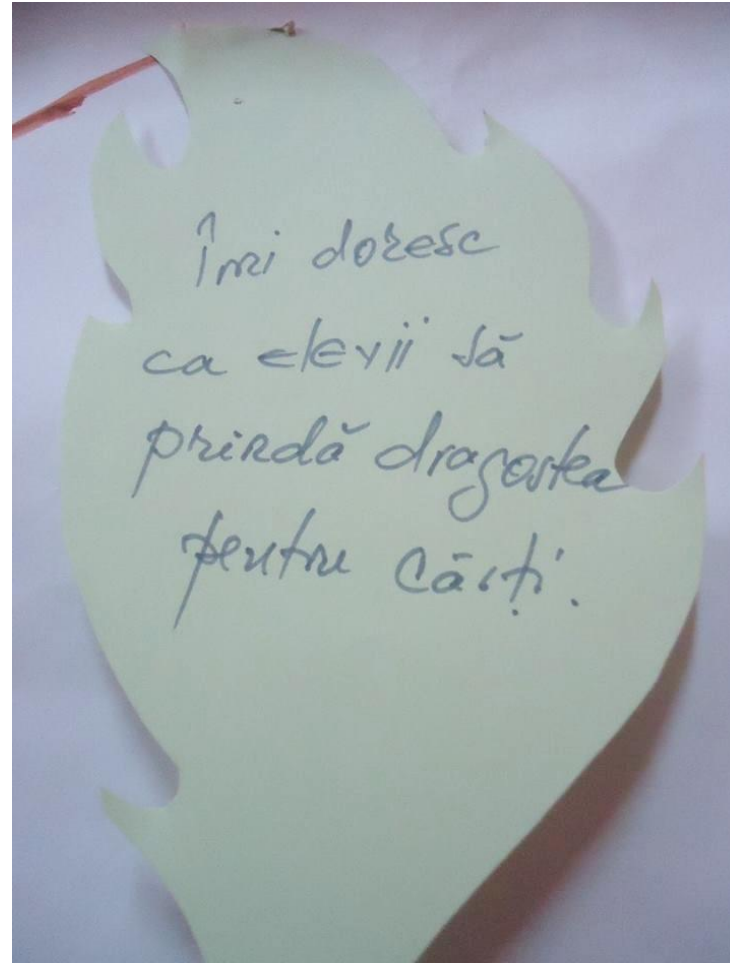 Îmi doresc
ca elevii să
prindă dragostea
pentru cărți.